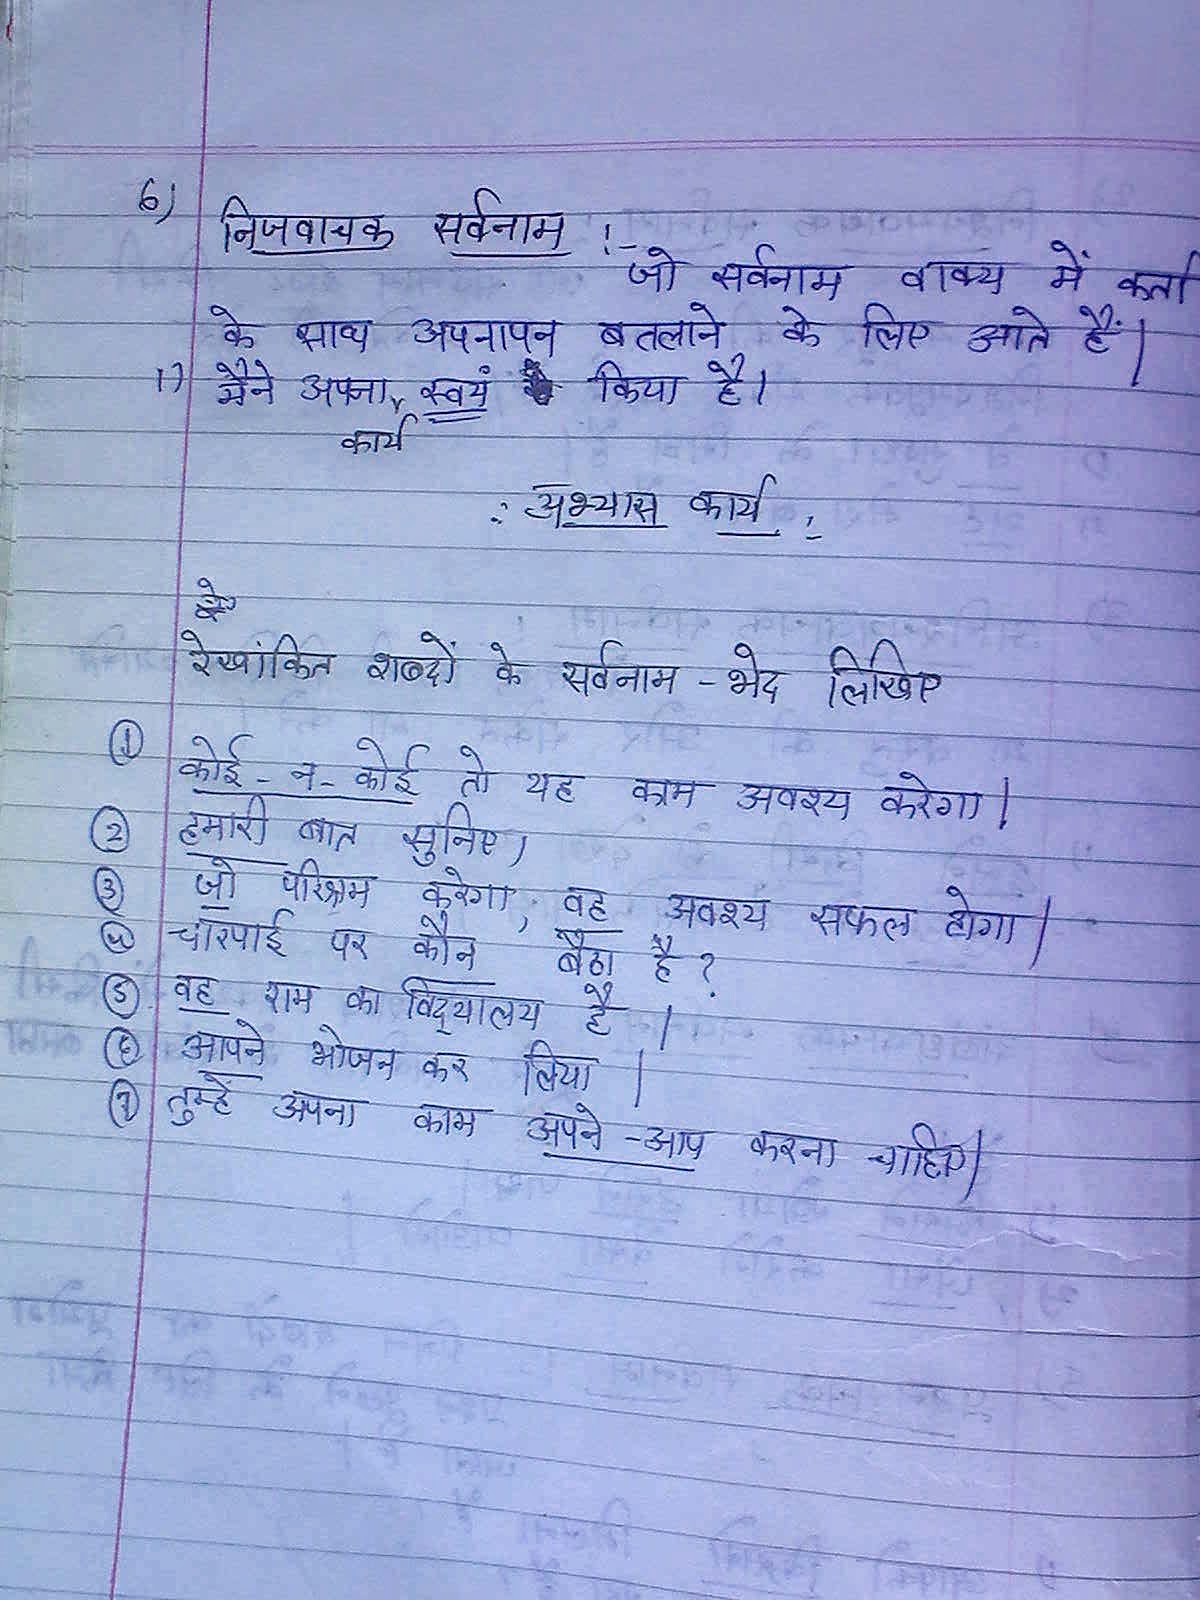 6) निजवाचक सर्वनाम :-
जो सर्वनाम वाक्य में कर्ता
के साथ अपनापन बतलाने के लिए आते हैं।
1) मैंने अपना कार्य स्वयं किया है।
: अभ्यास कार्य :
रेखांकित शब्दों के सर्वनाम - भेद लिखिए
1 कोई - न - कोई तो यह काम अवश्य करेगा।
2 हमारी बात सुनिए,
3 जो परिश्रम करेगा, वह अवश्य सफल होगा।
4 चारपाई पर कौन बैठा है?
5 वह राम का विद्‌यालय है।
6 आपने भोजन कर लिया।
7 तुम्हें अपना काम अपने -आप करना चाहिए।